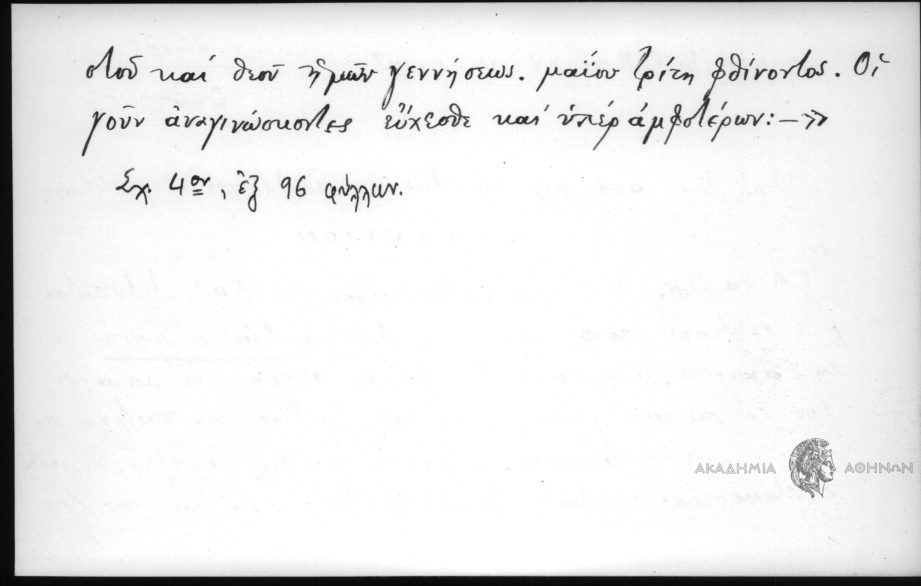 στοῦ καί θεοῦ ἡμῶν γεννήσεως. μαΐου τρίτη φθίνοντος. Οἱ
γοῦν ἀναγινώσκοντες εὔχεσθε καί ὑπέρ ἀμφοτέρων:—»
Σχ. 4ον, ἐξ 96 φύλλων.
ΑΚΑΔΗΜΙΑ ΑΘΗΝΩΝ